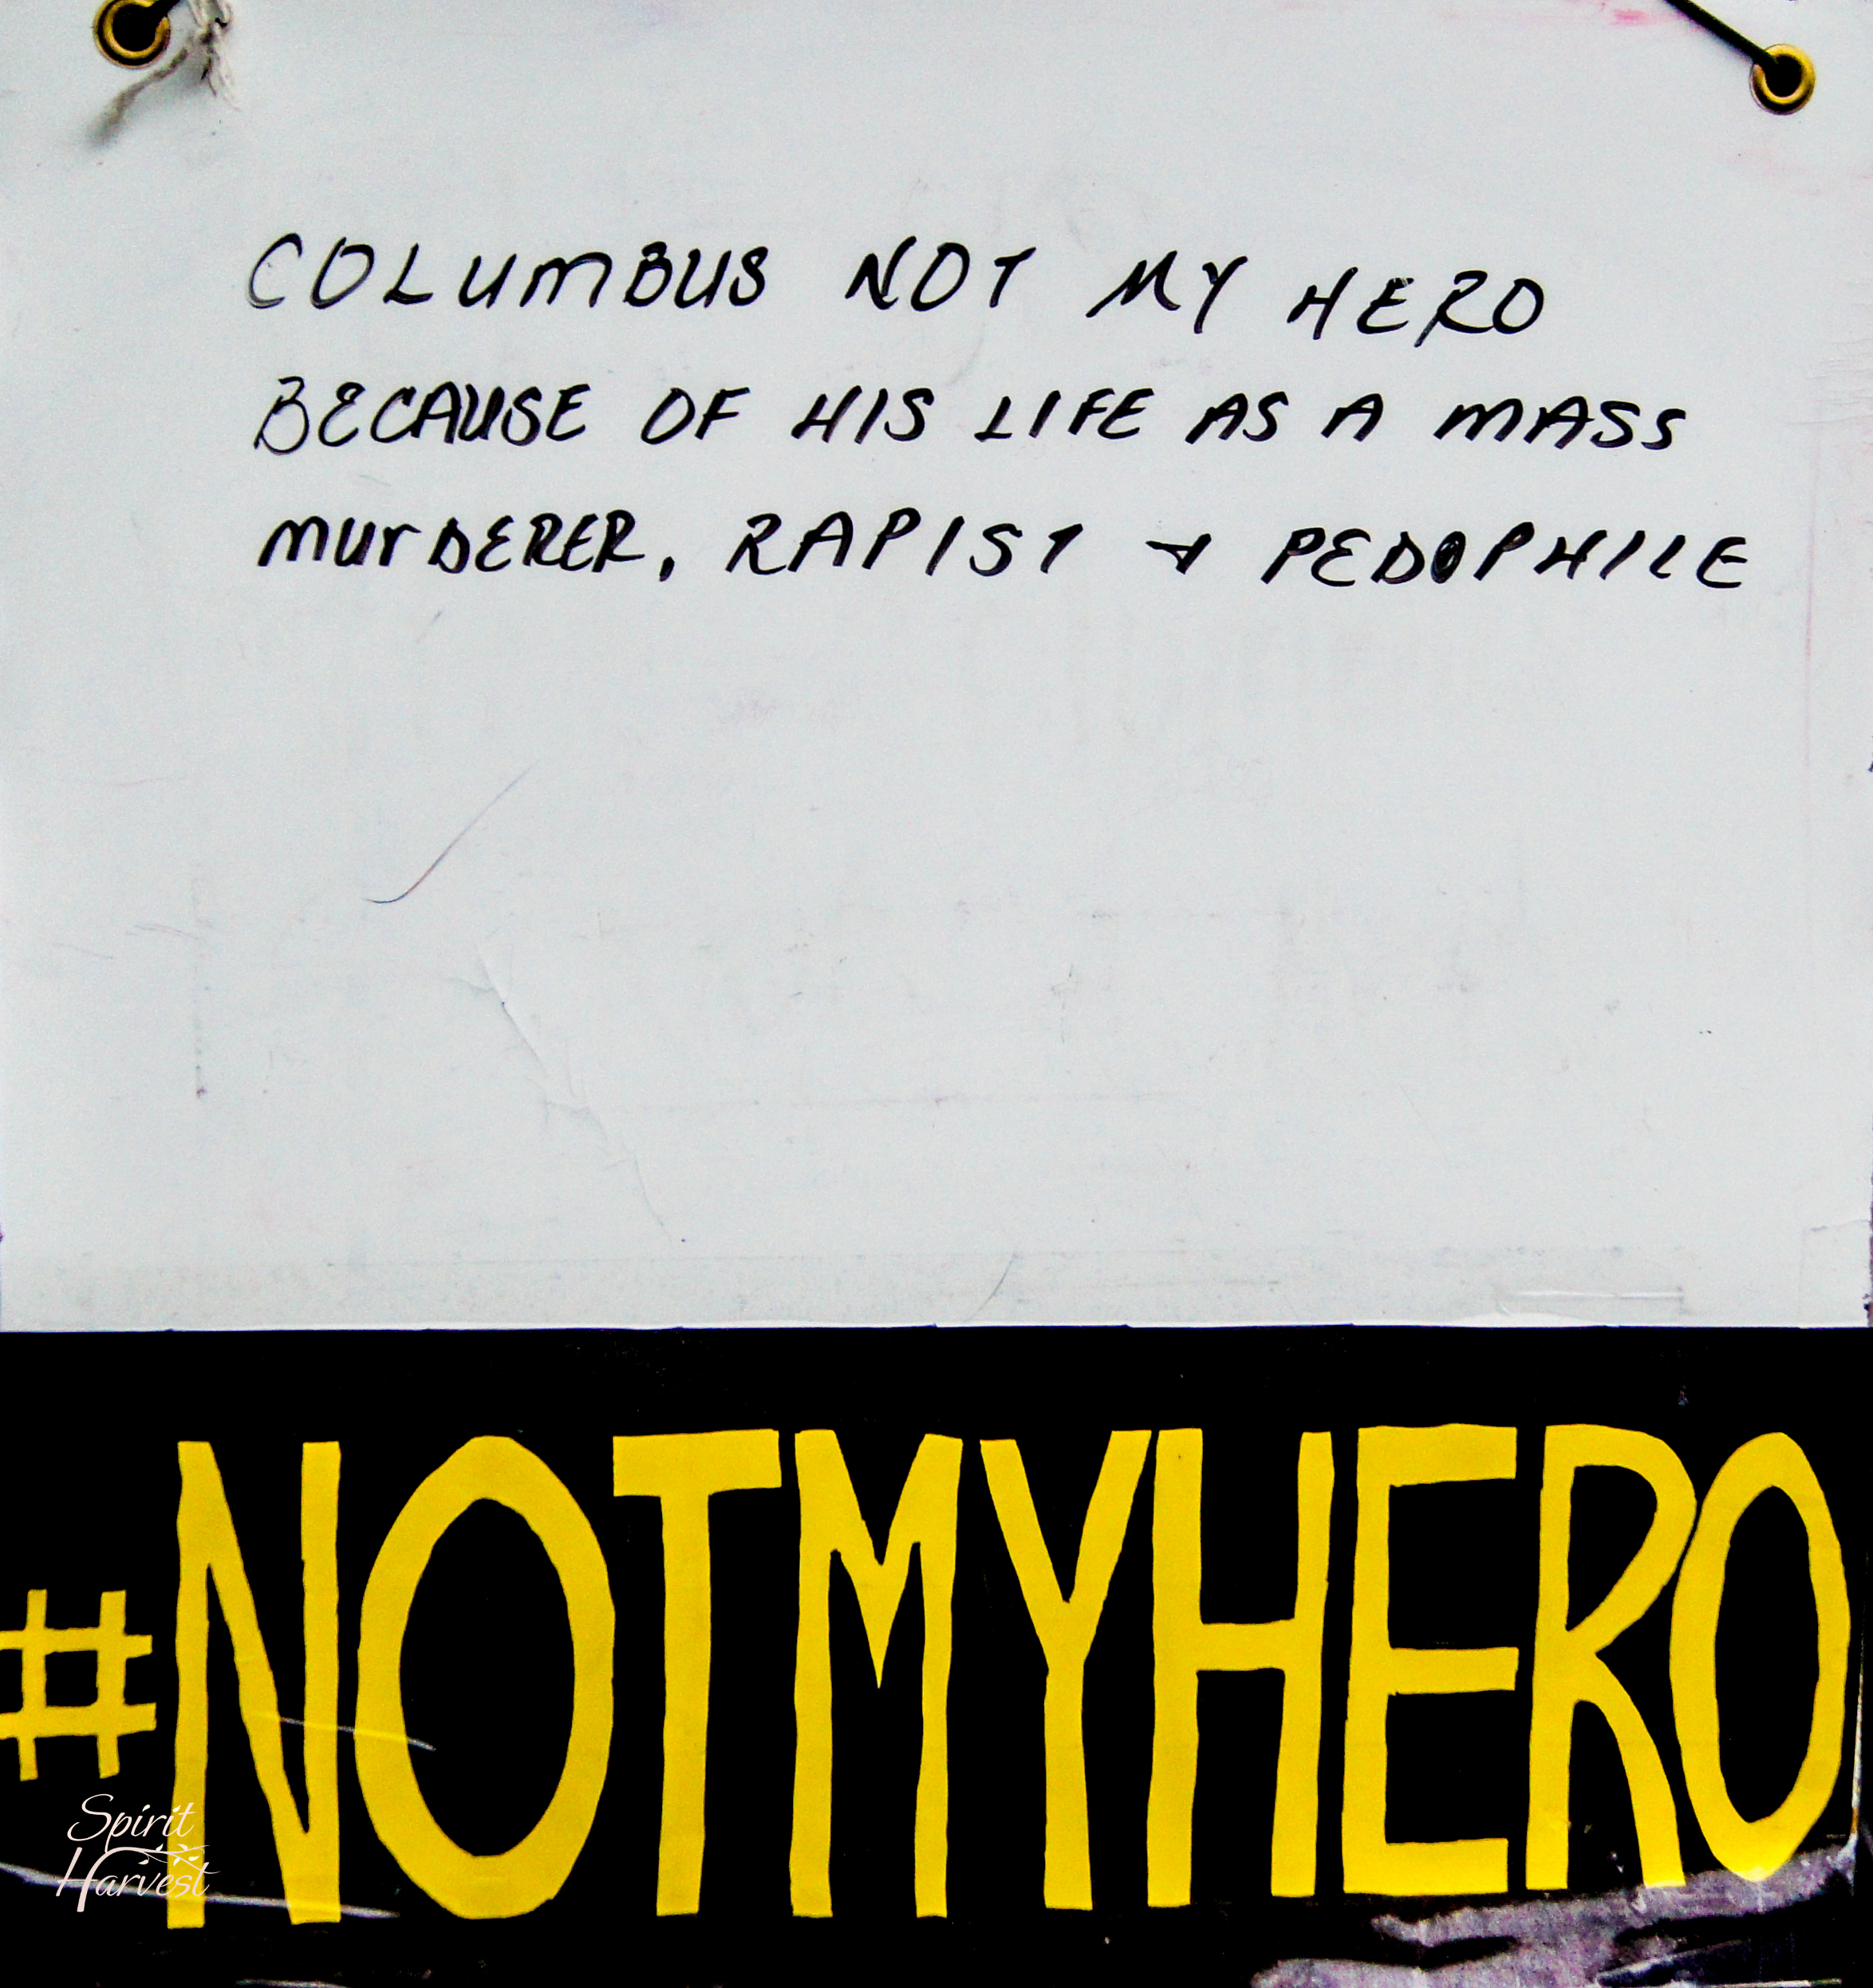 COLUMBUS NOT MY HERO
BECAUSE OF HIS LIFE AS A MASS
MURDERER, RAPIST & PEDOPHILE
#NOTMYHERO
Spirit
Harvest